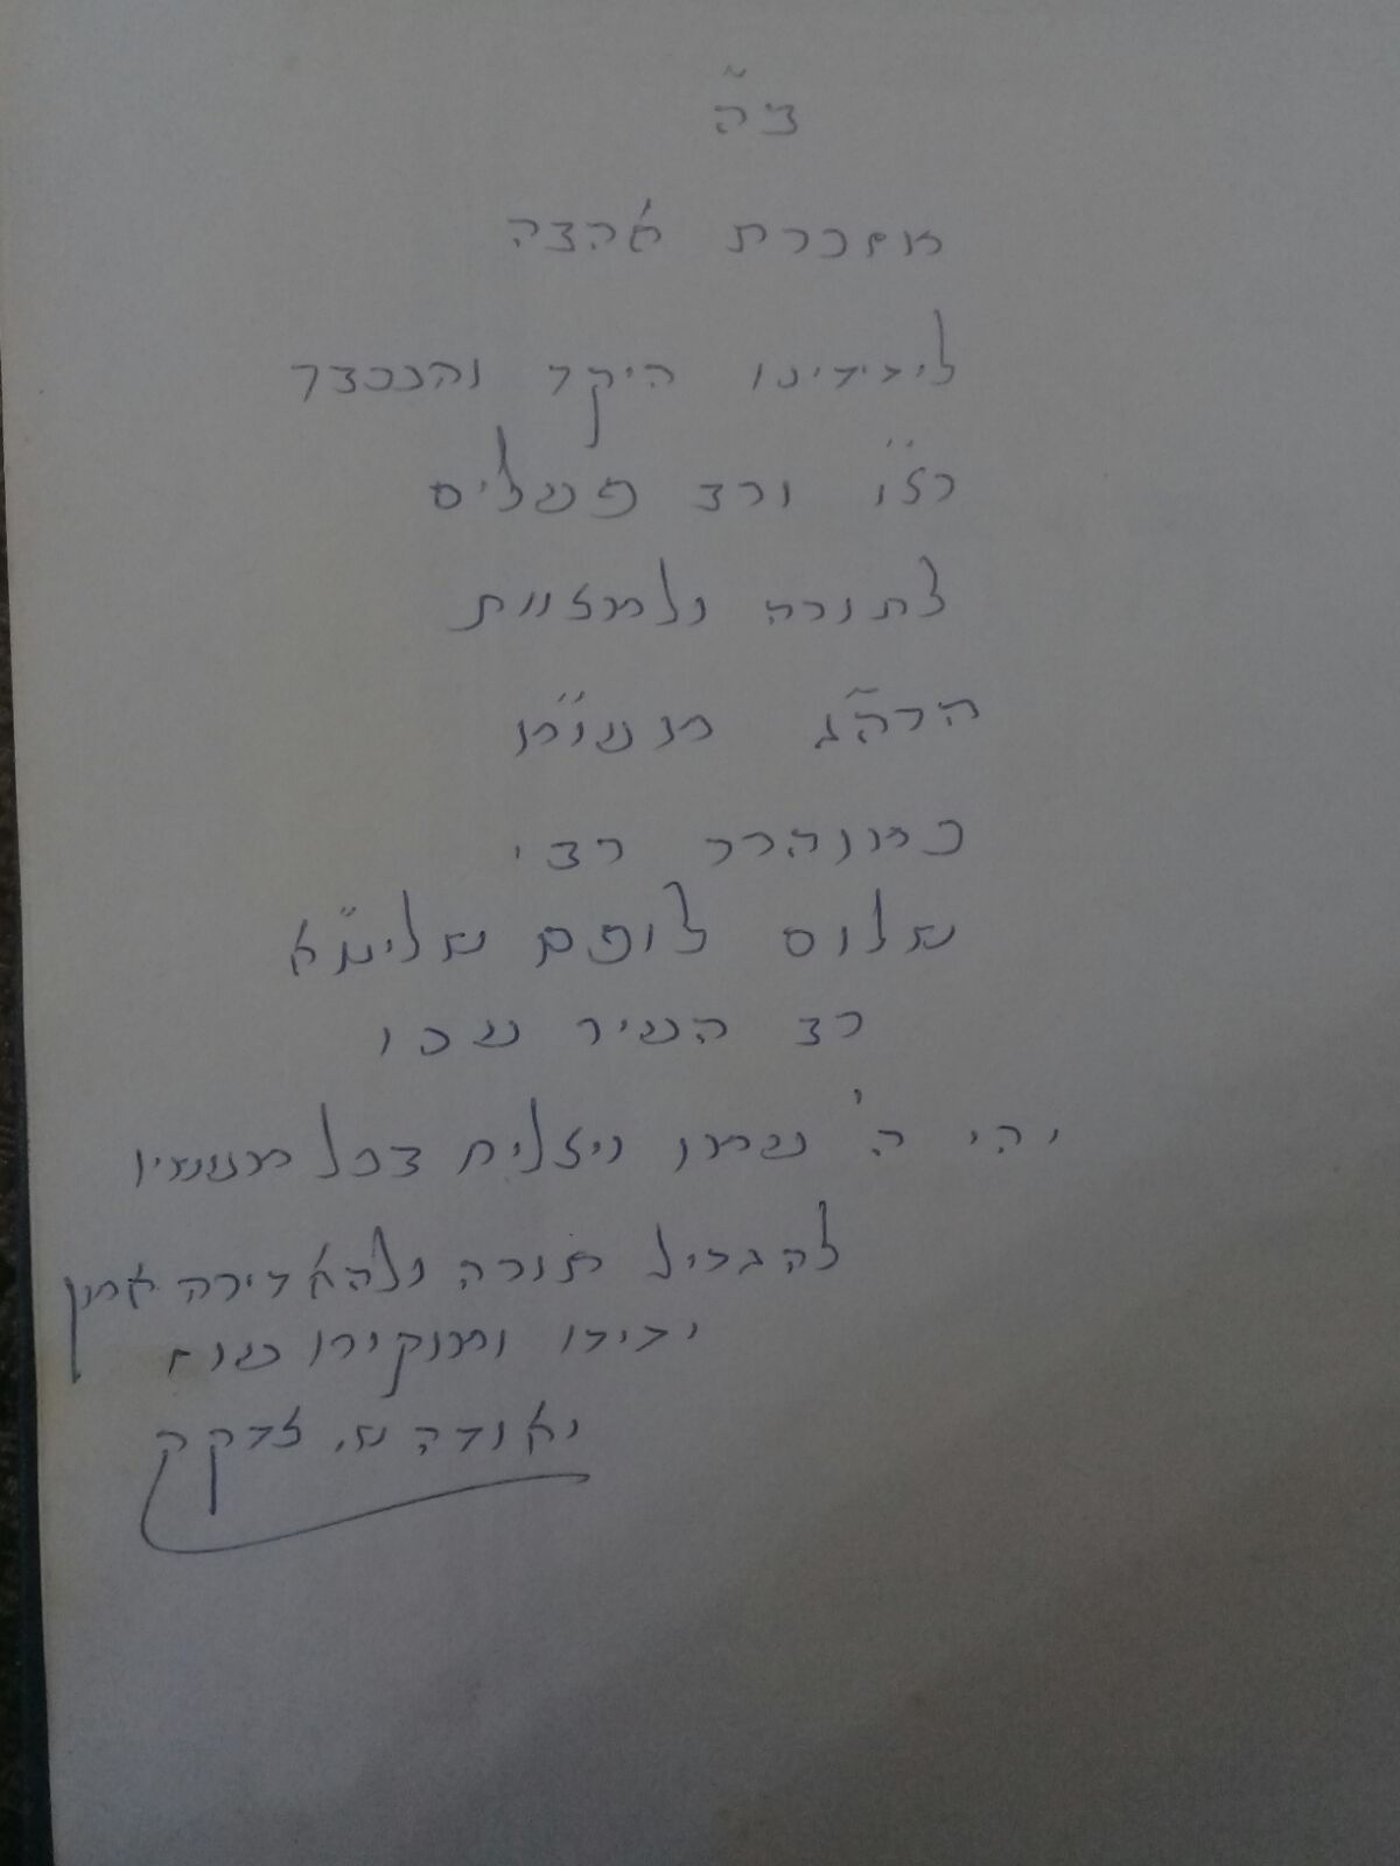 ב"ה
מזכרת אהבה
לידידינו היקר והנכבד
רצ"ו ורב פעלים
לתורה ולמצוות
הרה"ג מעו"מ
כמוהרר רבי
שלום לופס שליט"א
רב העיר עכו
יהי ה' עמו ויצליח בכל מעשיו
להגדיל תורה ולהאדירה אמן
ידידו ומוקירו
יאודה ש. צדקה